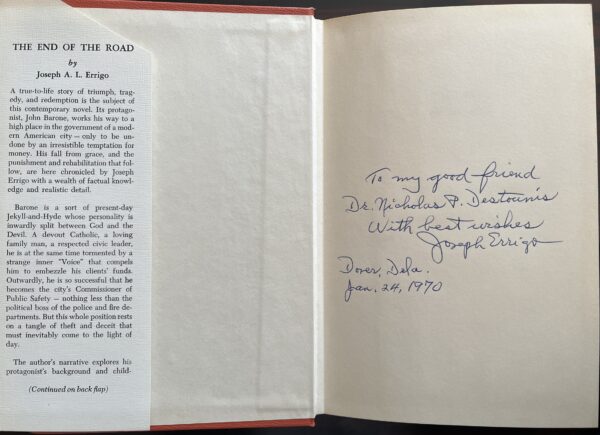 THE END OF THE ROAD
by
Joseph A. L. Errigo
A true-to-life story of triumph, trag-
edy, and redemption is the subject of
this contemporary novel. Its protago-
nist, John Barone, works his way to a
high place in the government of a mod-
ern American city — only to be un-
done by an irresistible temptation for
money. His fall from grace, and the
punishment and rehabilitation that fol-
low, are here chronicled by Joseph
Errigo with a wealth of factual knowl-
edge and realistic detail.
Barone is a sort of present-day
Jekyll-and-Hyde whose personality is
inwardly split between God and the
Devil. A devout Catholic, a loving
family man, a respected civic leader,
he is at the same time tormented by a
strange inner "Voice" that compels
him to embezzle his clients' funds.
Outwardly, he is so successful that he
becomes the city's Commissioner of
Public Safety — nothing less than the
political boss of the police and fire de-
partments. But this whole position rests
on a tangle of theft and deceit that
must inevitably come to the light of
day.
The author's narrative explores his
protagonist's background and child-
(Continued on back flap)
To my good friend
Dr. Nicholas P. Destounis
With best wishes
Joseph Errigo
Dover, Dela.
Jan. 24, 1970